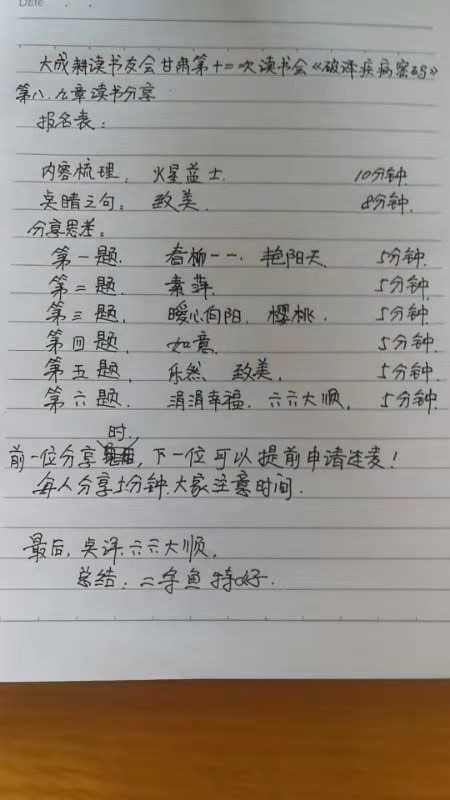 大成耕读书友会甘肃第十二次读书会《破译疾病密码》
第八.九章读书分享
报名表:
内容梳理, 火星蓝士. 10分钟.
点睛之句。 致美. 8分钟.
分享思考。
第一题. 春柳一一. 艳阳天. 5分钟.
第二题. 素萍. 5分钟.
第三题, 暖心向阳. 樱桃. 5分钟.
第四题, 如意. 5分钟.
第五题, 乐然 致美, 5分钟.
第六题. 涓涓幸福. 六六大顺, 5分钟.
时,
前一位分享,下一位可以提前申请连麦!
每人分享5分钟.大家注意时间.
最后,点评.六六大顺,
总结:二子鱼特好.